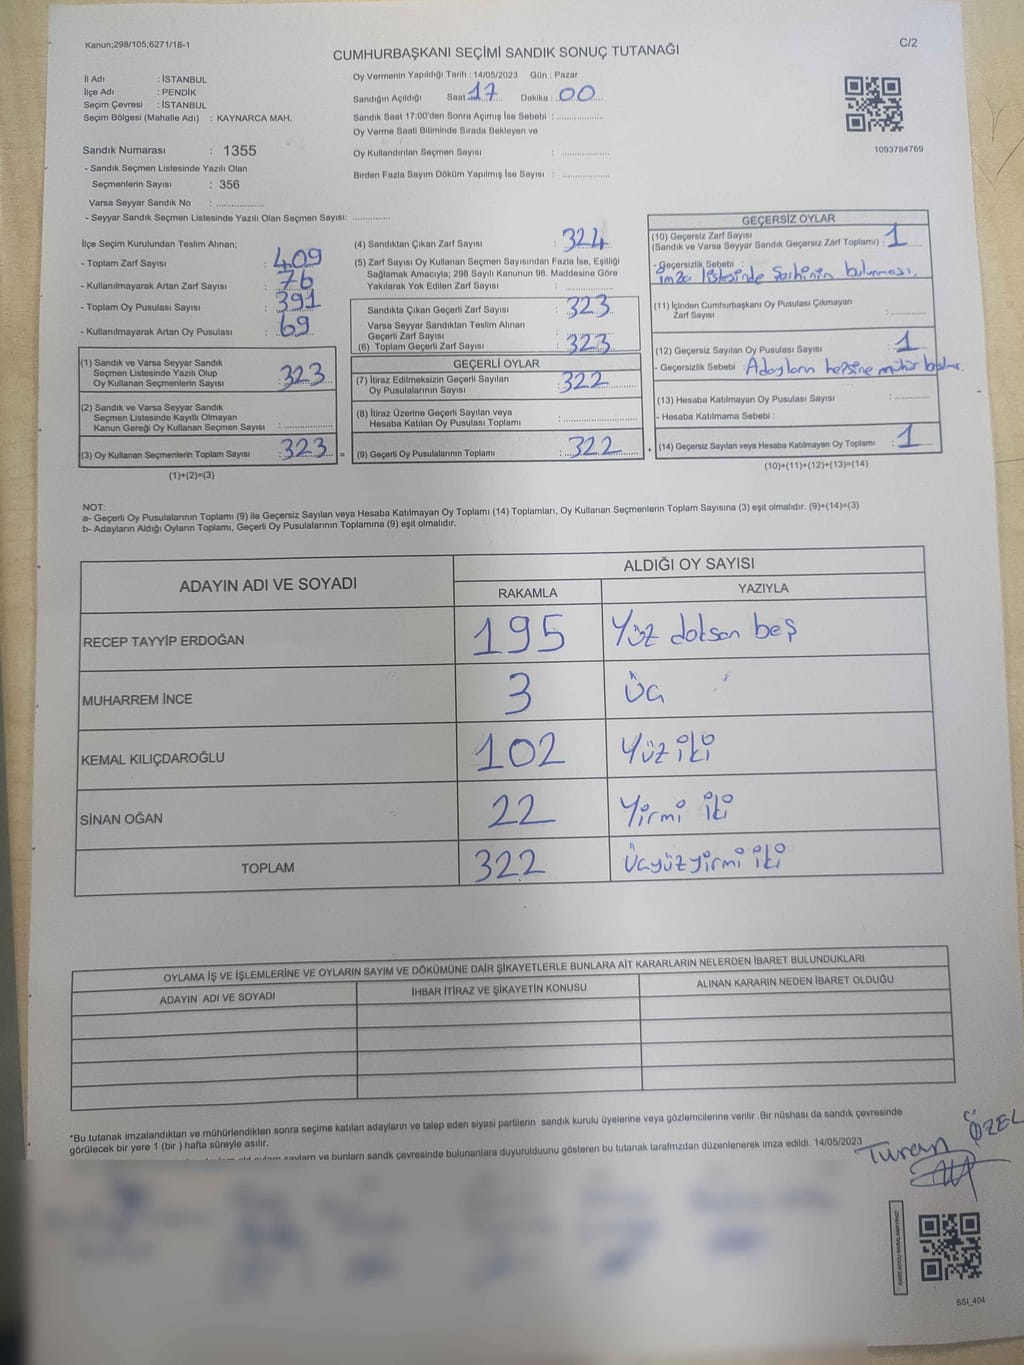 Kanun;298/105;6271/16-1
C/2
CUMHURBAŞKANI SEÇİMİ SANDIK SONUÇ TUTANAĞI
İl Adı : İSTANBUL
İlçe Adı : PENDİK
Seçim Çevresi : İSTANBUL
Seçim Bölgesi (Mahalle Adı) : KAYNARCA MAH.
Sandık Numarası : 1355
- Sandık Seçmen Listesinde Yazılı Olan
Seçmenlerin Sayısı : 356
Varsa Seyyar Sandık No : ..................
- Seyyar Sandık Seçmen Listesinde Yazılı Olan Seçmen Sayısı: ..............
Oy Vermenin Yapıldığı Tarih : 14/05/2023 Gün : Pazar
Sandığın Açıldığı Saat : 17 Dakika : 00
Sandık Saat 17:00'den Sonra Açımış İse Sebebi : ..................
Oy Verme Saati Bitiminde Sırada Bekleyen ve
Oy Kullandırılan Seçmen Sayısı : ..................
Birden Fazla Sayım Döküm Yapılmış İse Sayısı : ..................
1093784769
İlçe Seçim Kurulundan Teslim Alınan;
- Toplam Zarf Sayısı : 409
- Kullanılmayarak Artan Zarf Sayısı : 76
- Toplam Oy Pusulası Sayısı : 391
- Kullanılmayarak Artan Oy Pusulası : 69
(1) Sandık ve Varsa Seyyar Sandık
Seçmen Listesinde Yazılı Olup
Oy Kullanan Seçmenlerin Sayısı : 323
(2) Sandık ve Varsa Seyyar Sandık
Seçmen Listesinde Kayıtlı Olmayan
Kanun Gereği Oy Kullanan Seçmen Sayısı : ..............
(3) Oy Kullanan Seçmenlerin Toplam Sayısı : 323 =
(1)+(2)=(3)
(4) Sandıktan Çıkan Zarf Sayısı : 324
(5) Zarf Sayısı Oy Kullanan Seçmen Sayısından Fazla İse, Eşitliği
Sağlamak Amacıyla; 298 Sayılı Kanunun 98. Maddesine Göre
Yakılarak Yok Edilen Zarf Sayısı : ..............
Sandıkta Çıkan Geçerli Zarf Sayısı : 323
Varsa Seyyar Sandıktan Teslim Alınan
Geçerli Zarf Sayısı :
(6) Toplam Geçerli Zarf Sayısı : 323
GEÇERLİ OYLAR
(7) İtiraz Edilmeksizin Geçerli Sayılan
Oy Pusulalarının Sayısı : 322
(8) İtiraz Üzerine Geçerli Sayılan veya
Hesaba Katılan Oy Pusulası Toplamı : ..............
(9) Geçerli Oy Pusulalarının Toplamı : 322 +
GEÇERSİZ OYLAR
(10) Geçersiz Zarf Sayısı
(Sandık ve Varsa Seyyar Sandık Geçersiz Zarf Toplamı) : 1
- Geçersizlik Sebebi :
imza listesinde bulunması.
(11) İçinden Cumhurbaşkanı Oy Pusulası Çıkmayan
Zarf Sayısı : ..............
(12) Geçersiz Sayılan Oy Pusulası Sayısı : 1
- Geçersizlik Sebebi : Adayların hepsine mühür
(13) Hesaba Katılmayan Oy Pusulası Sayısı : ..............
- Hesaba Katılmama Sebebi :
(14) Geçersiz Sayılan veya Hesaba Katılmayan Oy Toplamı : 1
(10)+(11)+(12)+(13)=(14)
NOT:
a- Geçerli Oy Pusulalarının Toplamı (9) ile Geçersiz Sayılan veya Hesaba Katılmayan Oy Toplamı (14) Toplamları, Oy Kullanan Seçmenlerin Toplam Sayısına (3) eşit olmalıdır. (9)+(14)=(3)
b- Adayların Aldığı Oyların Toplamı, Geçerli Oy Pusulalarının Toplamına (9) eşit olmalıdır.
ADAYIN ADI VE SOYADI
ALDIĞI OY SAYISI
RAKAMLA YAZIYLA
RECEP TAYYİP ERDOĞAN 195 Yüz doksan beş
MUHARREM İNCE 3 Üç
KEMAL KILIÇDAROĞLU 102 Yüz iki
SİNAN OĞAN 22 Yirmi iki
TOPLAM 322 Üçyüzyirmi iki
OYLAMA İŞ VE İŞLEMLERİNE VE OYLARIN SAYIM VE DÖKÜMÜNE DAİR ŞİKAYETLERLE BUNLARA AİT KARARLARIN NELERDEN İBARET BULUNDUKLARI
ADAYIN ADI VE SOYADI İHBAR İTİRAZ VE ŞİKAYETİN KONUSU ALINAN KARARIN NEDEN İBARET OLDUĞU
*Bu tutanak imzalandıktan ve mühürlendikten sonra seçime katılan adayların ve talep eden siyasi partilerin sandık kurulu üyelerine veya gözlemcilerine verilir .Bir nüshası da sandık çevresinde
görülecek bir yere 1 (bir ) hafta süreyle asılır.
ve bunların sandk çevresinde bulunanlara duyurulduunu gösteren bu tutanak tarafmzdan düzenlenerek imza edildi. 14/05/2023
Turan ÖZEL
SSI_404